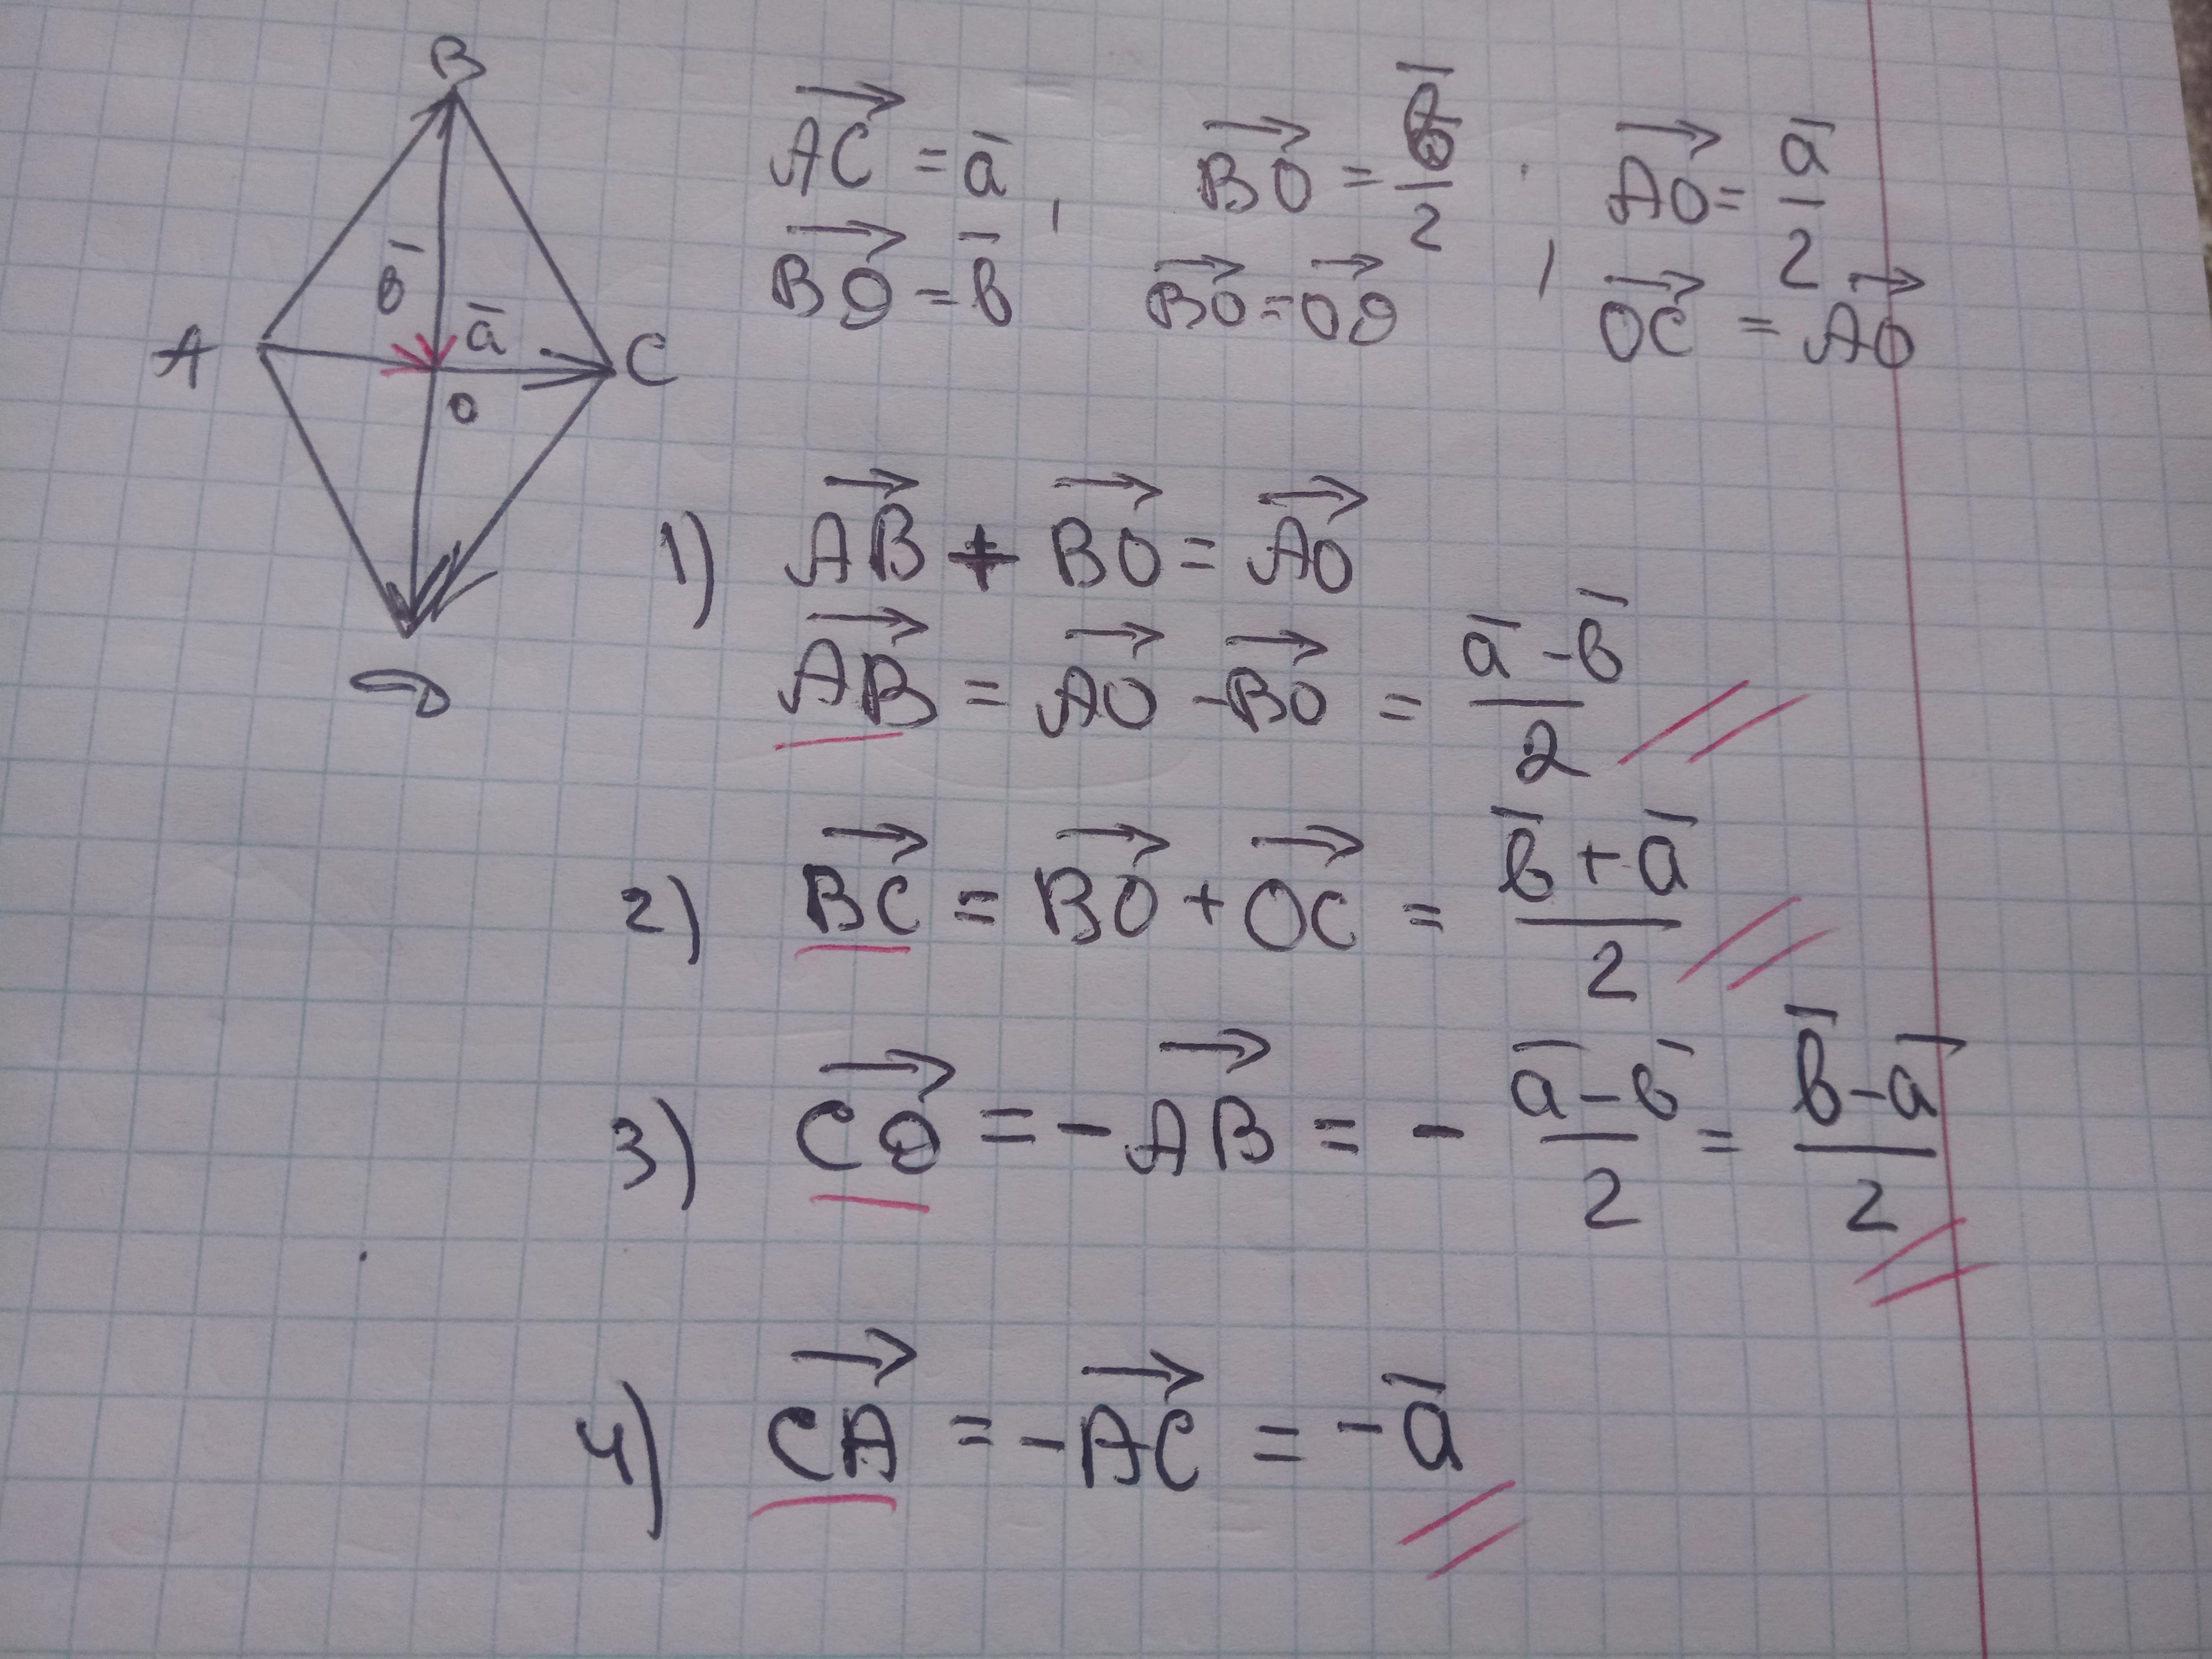 B
b̄
ā
A
C
O
D
AC⃗ = ā, BO⃗ = b̄/2, AO⃗ = ā/2
BD⃗ = b̄ BO⃗ = OD⃗ OC⃗ = AO⃗
1) AB⃗ + BO⃗ = AO⃗
AB⃗ = AO⃗ - BO⃗ = (ā - b̄)/2
2) BC⃗ = BO⃗ + OC⃗ = (b̄ + ā)/2
3) CD⃗ = - AB⃗ = - (ā - b̄)/2 = (b̄ - ā)/2
4) CA⃗ = - AC⃗ = - ā